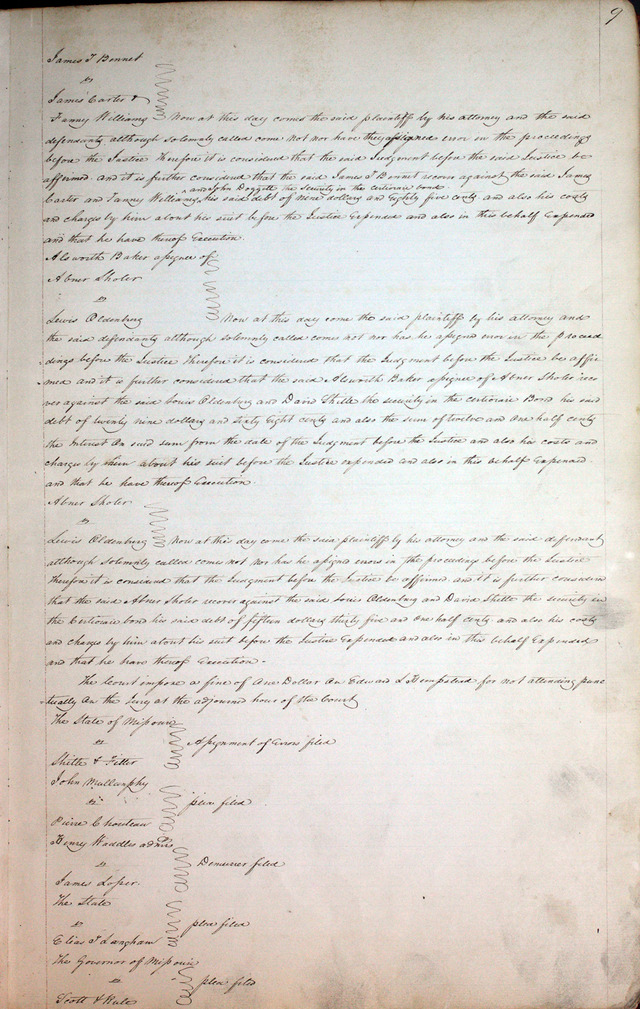 9
James T Bennet
vs
James Carter &
Fanny Williams Now at this day comes the said plaintiff by his attorney and the said
defendants although solemnly called come not nor have they assigned error in the proceedings
before the Justice Therefore it is considered that the said Judgment before the said Justice be
affirmed and it is further considered that the said James T Bennet recover against the said James
and John Doggett the Security in the certiorari bond
Carter and Fanny Williams his said debt of nine dollars and Eighty five cents and also his costs
and charges by him about his suit before the Justice Expended and also in this behalf Expended
and that he have thereof Execution
Alsworth Baker assignee of
Abner Sholer
vs
Lewis Oldenburg Now at this day come the said plaintiff by his attorney and
the said defendants although solemnly called comes not nor has he assigned error in the proceed
dings before the Justice Therefore it is considered that the Judgment before the Justice be affir
med and it is further considered that the said Alsworth Baker assignee of Abner Sholer reco
ver against the said Louis Oldenburg and David Shille the security in the certiorari Bond his said
debt of twenty nine dollars and sixty Eight cents and also the sum of twelve and One half cents
the Interest On said sum from the date of the Judgment before the Justice and also his costs and
charges by him about his suit before the Justice expended and also in this behalf Expended
and that he have thereof Execution
Abner Sholer
vs
Lewis Oldenburg Now at this day come the said plaintiff by his attorney and the said defendant
although Solemnly called comes not nor has he assigned errors in the proceedings before the Justice
Therefore it is considered that the Judgment before the Justice be affirmed and it is further considered
that the said Abner Sholer recover against the said Louis Oldenburg and David Shille the security in
the Certiorari bond his said debt of fifteen dollars thirty five and One half cents and also his costs
and charges by him about his suit before the Justice Expended and also in this behalf Expended
and that he have thereof Execution -
The Court impose a fine of One Dollar On Edward S Hempstead for not attending punc
tually On the Jury at the adjourned hour of the Court
The State of Missouri
vs Assignment of Errors filed
Shille & Fitter
John Mullanphy
vs plea filed
Pierre Chouteau
Henry Waddles admrs
vs Demurrer filed
James Loper
The State
vs plea filed
Elias T Langham
The Governor of Missouri
vs plea filed
Scott & Rule